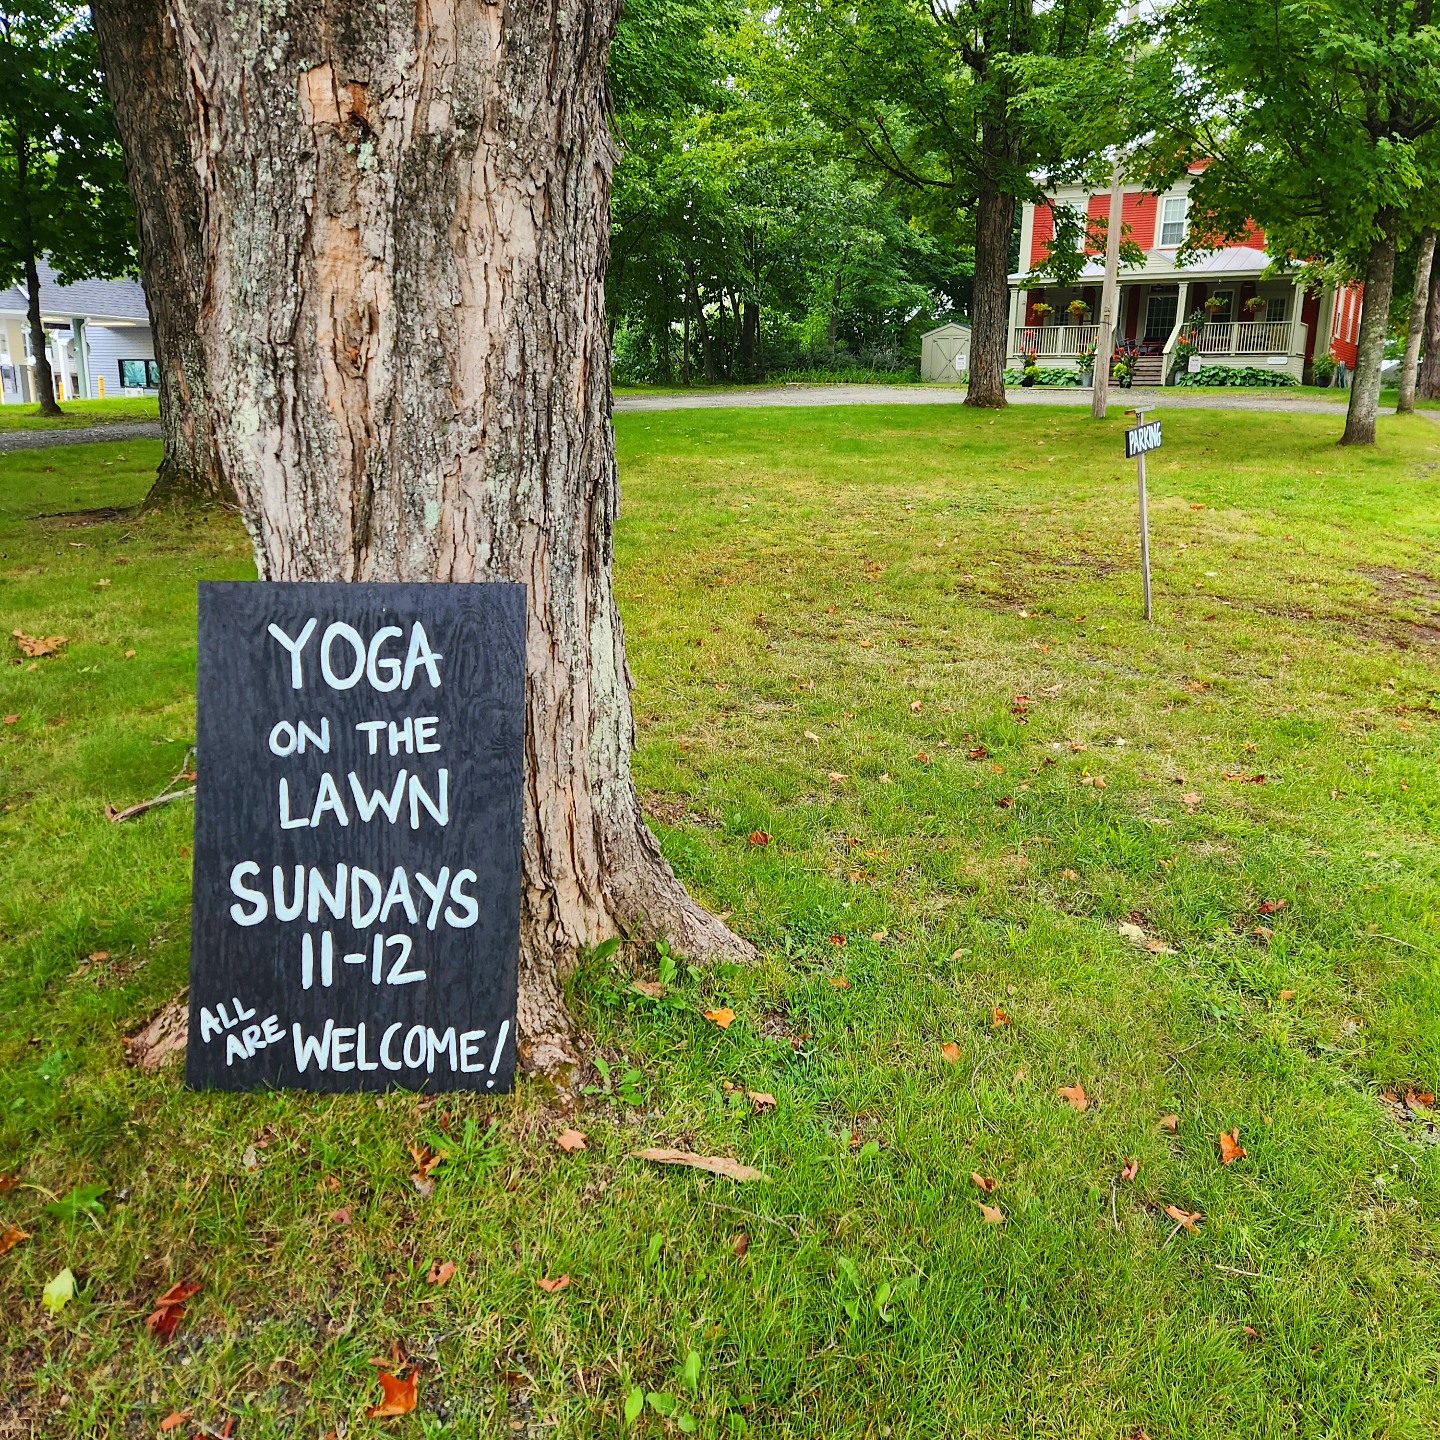 YOGA
ON THE
LAWN
SUNDAYS
11-12
ALL ARE WELCOME!
PARKING